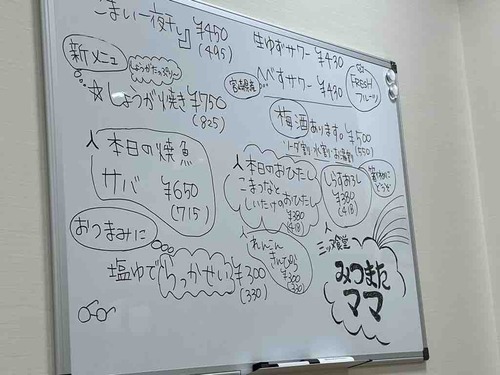 こまい一夜干し
¥450
(495)
新メニュー
しょうがたっぷり〜
☆しょうが焼き ¥750
(825)
本日の焼魚
サバ ¥650
(715)
おつまみに
塩ゆでらっかせい ¥300
(330)
生ゆずサワー ¥430
宮崎県産
へべすサワー ¥430
FRESH
フルーツ
梅酒あります。¥500
(550)
ソーダ割・水割・お湯割
本日のおひたし
こまつなと
しいたけのおひたし
¥380
(418)
しらすおろし
¥380
(418)
れんこん
きんぴら
¥300
(330)
三ッ又食堂
みつまた
ママ